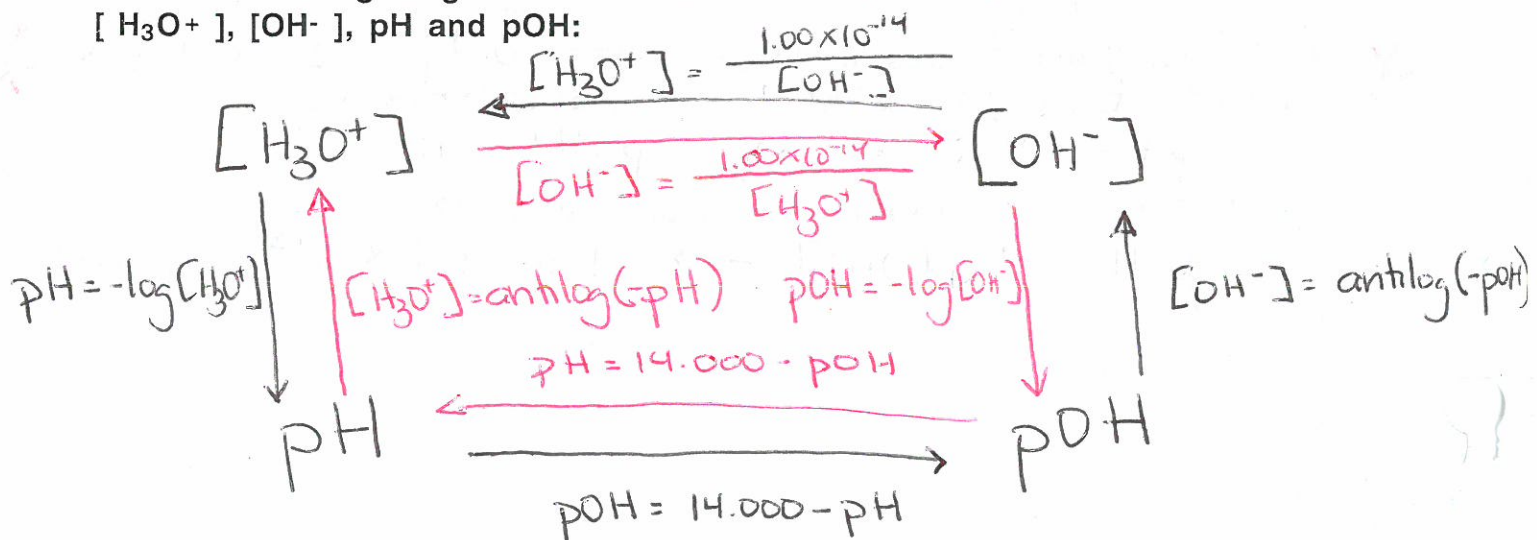 [ H₃O+ ], [OH- ], pH and pOH:
[H₃O⁺] = 1.00×10⁻¹⁴ / [OH⁻]
[H₃O⁺]
[OH⁻]
[OH⁻] = 1.00×10⁻¹⁴ / [H₃O⁺]
pH = -log[H₃O⁺]
[H₃O⁺]=antilog(-pH)
pOH = -log[OH⁻]
[OH⁻] = antilog(-pOH)
pH = 14.000 - pOH
pH
pOH
pOH = 14.000 - pH